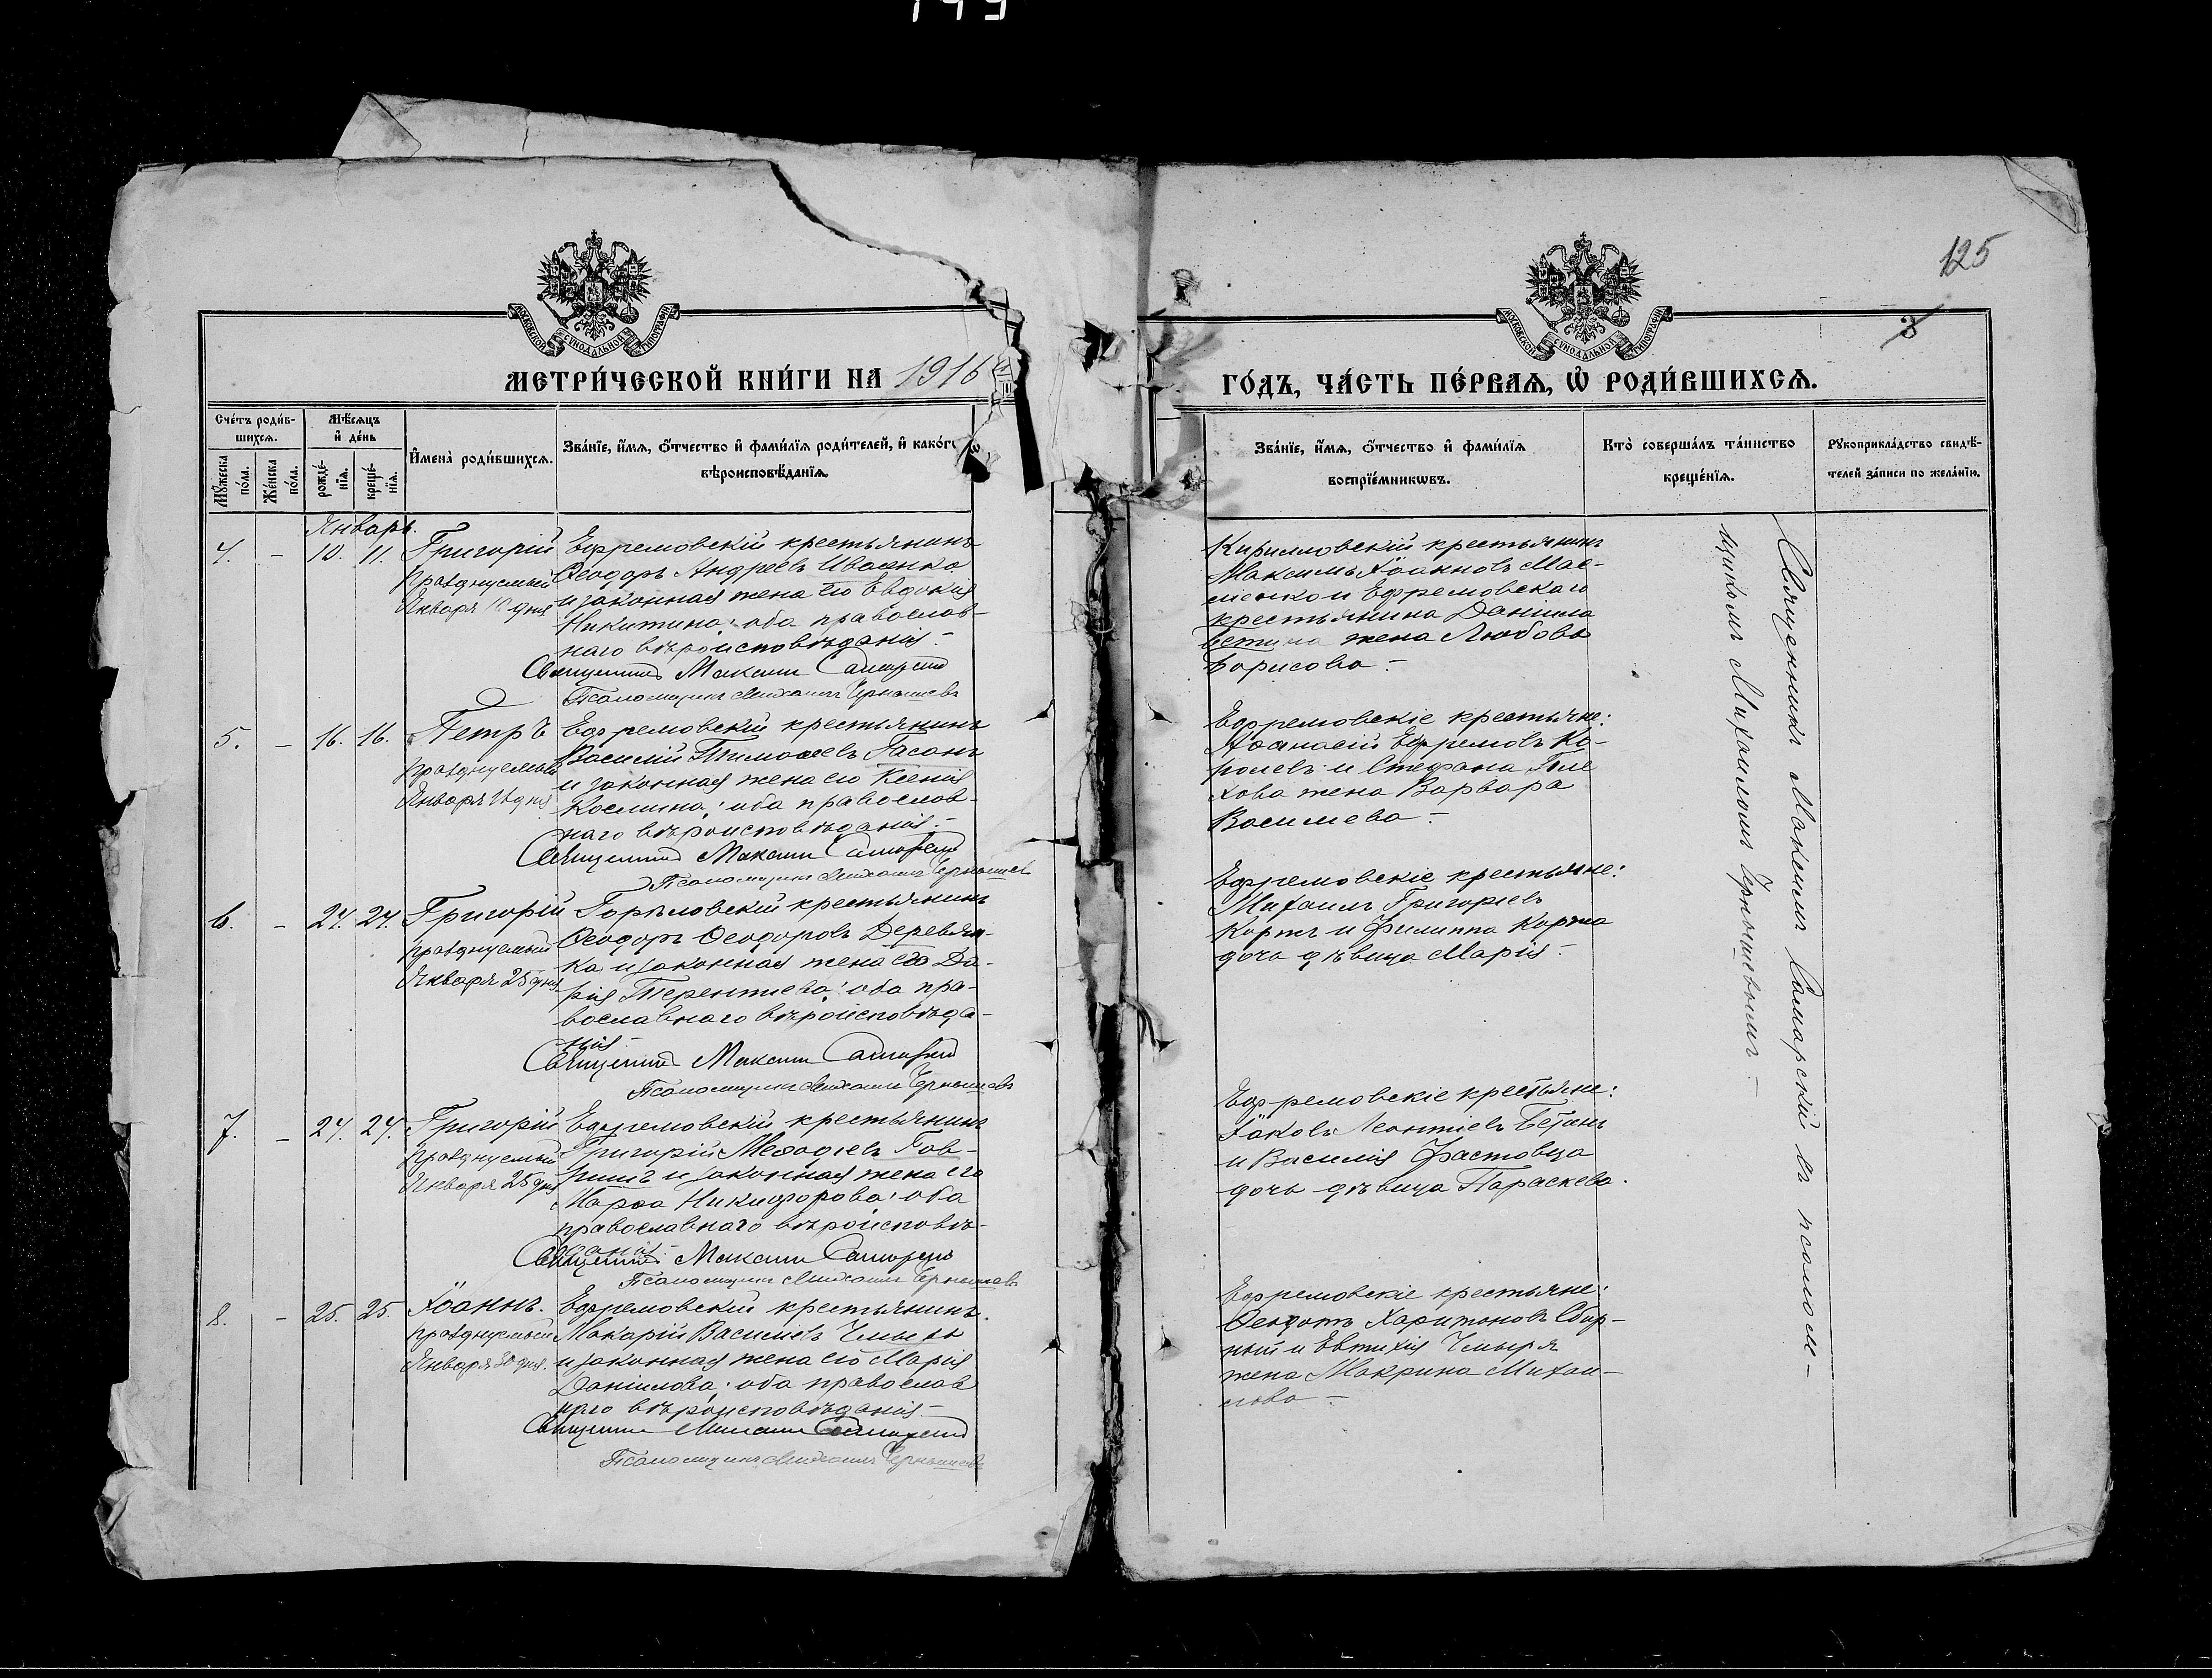 149
125
3
МОСКОВСКОЙ СѴНОДАЛЬНОЙ ТИПОГРАФІИ
МОСКОВСКОЙ СѴНОДАЛЬНОЙ ТИПОГРАФІИ
МЕТРИ́ЧЕСКОЙ КНИ́ГИ НА 1916
ГО́ДЪ, ЧА́СТЬ ПЕ́РВАЯ, Ѡ РОДИ́ВШИХСЯ.
Сче́тъ роди́в-
шихся.
Мꙋ́жеска по́ла.
Же́нска по́ла.
Мѣ́сяцъ
и де́нь
рожде́-
нїя.
креще́-
нїя.
И҆мена̀ роди́вшихся.
Зва́нїе, и҆́мя, ѻ҆́тчество и҆ фами́лїя роди́телей, и҆ како́гѡ
вѣроисповѣ́данїя.
Зва́нїе, и҆́мя, ѻ҆́тчество и҆ фами́лїя
воспрїе́мникωвъ.
Кто̀ соверша́лъ та́инство
креще́нїя.
Рꙋкоприкла́дство свидѣ́-
телей за́писи по жела́нїю.
Январь.
4. - 10. 11. Григорій
празднуемый
Января 10 дня
Ефремовскій крестьянинъ
Ѳеодоръ Андреевъ Иваенко
и законная жена его Евдокія
Никитина; оба православ-
наго вѣроисповѣданія.-
Священникъ Максим Самарскій
Псаломщикъ Михаилъ Чернышевъ
Кирилловскій крестьянинъ
Максимъ Іоанновъ
и Ефремовскаго
крестьянина Даніила
жена Любовь
Борисова -
5. - 16. 16. Петръ
празднуемый
Января дня
Ефремовскій крестьянинъ
Василій Тимоѳеевъ Гасанъ
и законная жена его Ксенія
Космина; оба православ-
наго вѣроисповѣданія.-
Священникъ Максим Самарскій
Псаломщикъ Михаилъ Чернышевъ
Ефремовскіе крестьяне:
Аѳанасій Ефремовъ Ко-
ролевъ и Стефана
жена Варвара
Васильева -
6. - 24. 24. Григорій
празднуемый
Января 25 дня
Горѣловскій крестьянинъ
Ѳеодоръ Ѳеодоровъ Деревян-
ка и законная жена его Да-
рія Терентіева; оба пра-
вославнаго вѣроисповѣда-
нія -
Священникъ Максим Самарскій
Псаломщикъ Михаилъ Чернышевъ
Ефремовскіе крестьяне:
Михаилъ Григоріевъ
Коржъ и Филиппа Коржа
дочь дѣвица Марія -
7. - 24. 24. Григорій
празднуемый
Января 25 дня
Ефремовскій крестьянинъ
Григорій Меѳодіевъ Гав-
ришъ и законная жена его
Марѳа Никифорова; оба
православнаго вѣроисповѣ-
данія -
Священникъ Максим Самарскій
Псаломщикъ Михаилъ Чернышевъ
Ефремовскіе крестьяне:
Іаковъ Леонтіевъ
и Василія Фастовца
дочь дѣвица Параскева.
8. - 25. 25. Іоаннъ.
празднуемый
Января 30 дня.
Ефремовскій крестьянинъ
Макарій Василіевъ
и законная жена его Марія
Даніилова; оба православ
наго вѣроисповѣданія -
Священникъ Максим Самарскій
Псаломщикъ Михаилъ Чернышевъ
Ефремовскіе крестьяне:
Ѳеодотъ Харитоновъ Сбир-
ный и Евтихія Чмыря
жена Макрина Михаи-
лова -
Священникъ Максимъ Самарскій съ псалом-
щикомъ Михаиломъ Чернышевымъ -